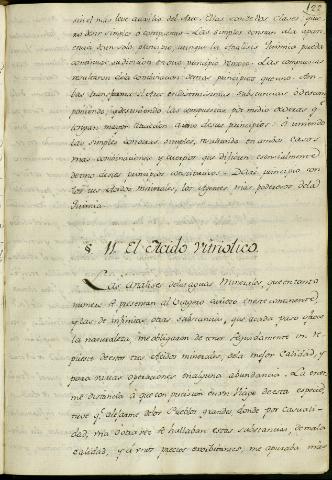 122
sin el mas leve auxilio del Arte. Ellas son de dos clases, que
no deven simples o compuestas. Las simples constan a la apari-
encia de un solo principio, aunque la Analisis Quimica pueda
continuar subdivision en que principio remoto. Las compuestas
resultaron de la combinacion de mas principios que uno. Am-
bas transforma el Arte en distintisimas substancias, ò descom-
poniendo, y destruiendo las compuestas por medio de otras q.e
tengan mayor atraccion a uno de sus principios: ò uniendo
las simples con otras simples, resultando en ambos casos
mas combinaciones y cuerpos que difieren esencialmente
de uno de sus principios constitutivos. Daré principio con
los tres Acidos minerales, los Agentes mas poderosos de la
Quimia.
§. 11. El Acido Vitriolico.
Las Analises de las aguas Minerales, que en tanto
numero se presentan al Viagero curioso en este continente,
y las de infinitas otras Substancias, que a cada paso ofrece
la naturaleza, me obligaron de tener seguidamente un re-
puesto de estos tres Acidos minerales, de la mejor Calidad, y
para varias operaciones en alguna abundancia. La enor-
me distancia à que con precision en un Viage de esta especie
tuve q.e alejarme de los Pueblos grandes, donde por casuali-
dad, una ù otra vez se hallavan estas substancias, de mala
Calidad, y à unos precios exorbitantes, me apuraba mas